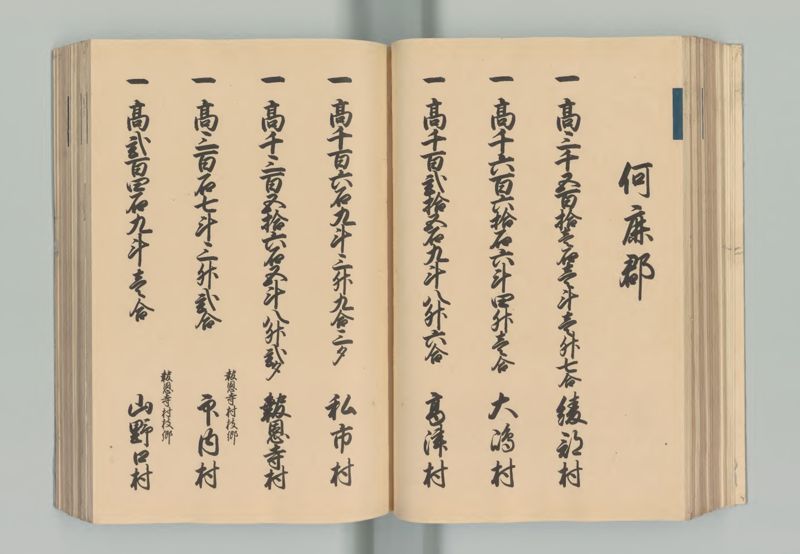 何鹿郡
一 高三千五百拾壱石壱斗壱升七合 綾部村
一 高千六百六拾石六斗四升壱合 大嶋村
一 高千百弐拾五石九斗八升六合 高津村
一 高千百六石九斗三升九合三夕 私市村
一 高千三百五拾六石五斗八升弐夕 報恩寺村
一 高三百石七斗三升弐合 报恩寺村枝郷 市内村
一 高弐百四石九斗壱合 報恩寺村枝郷 山野口村